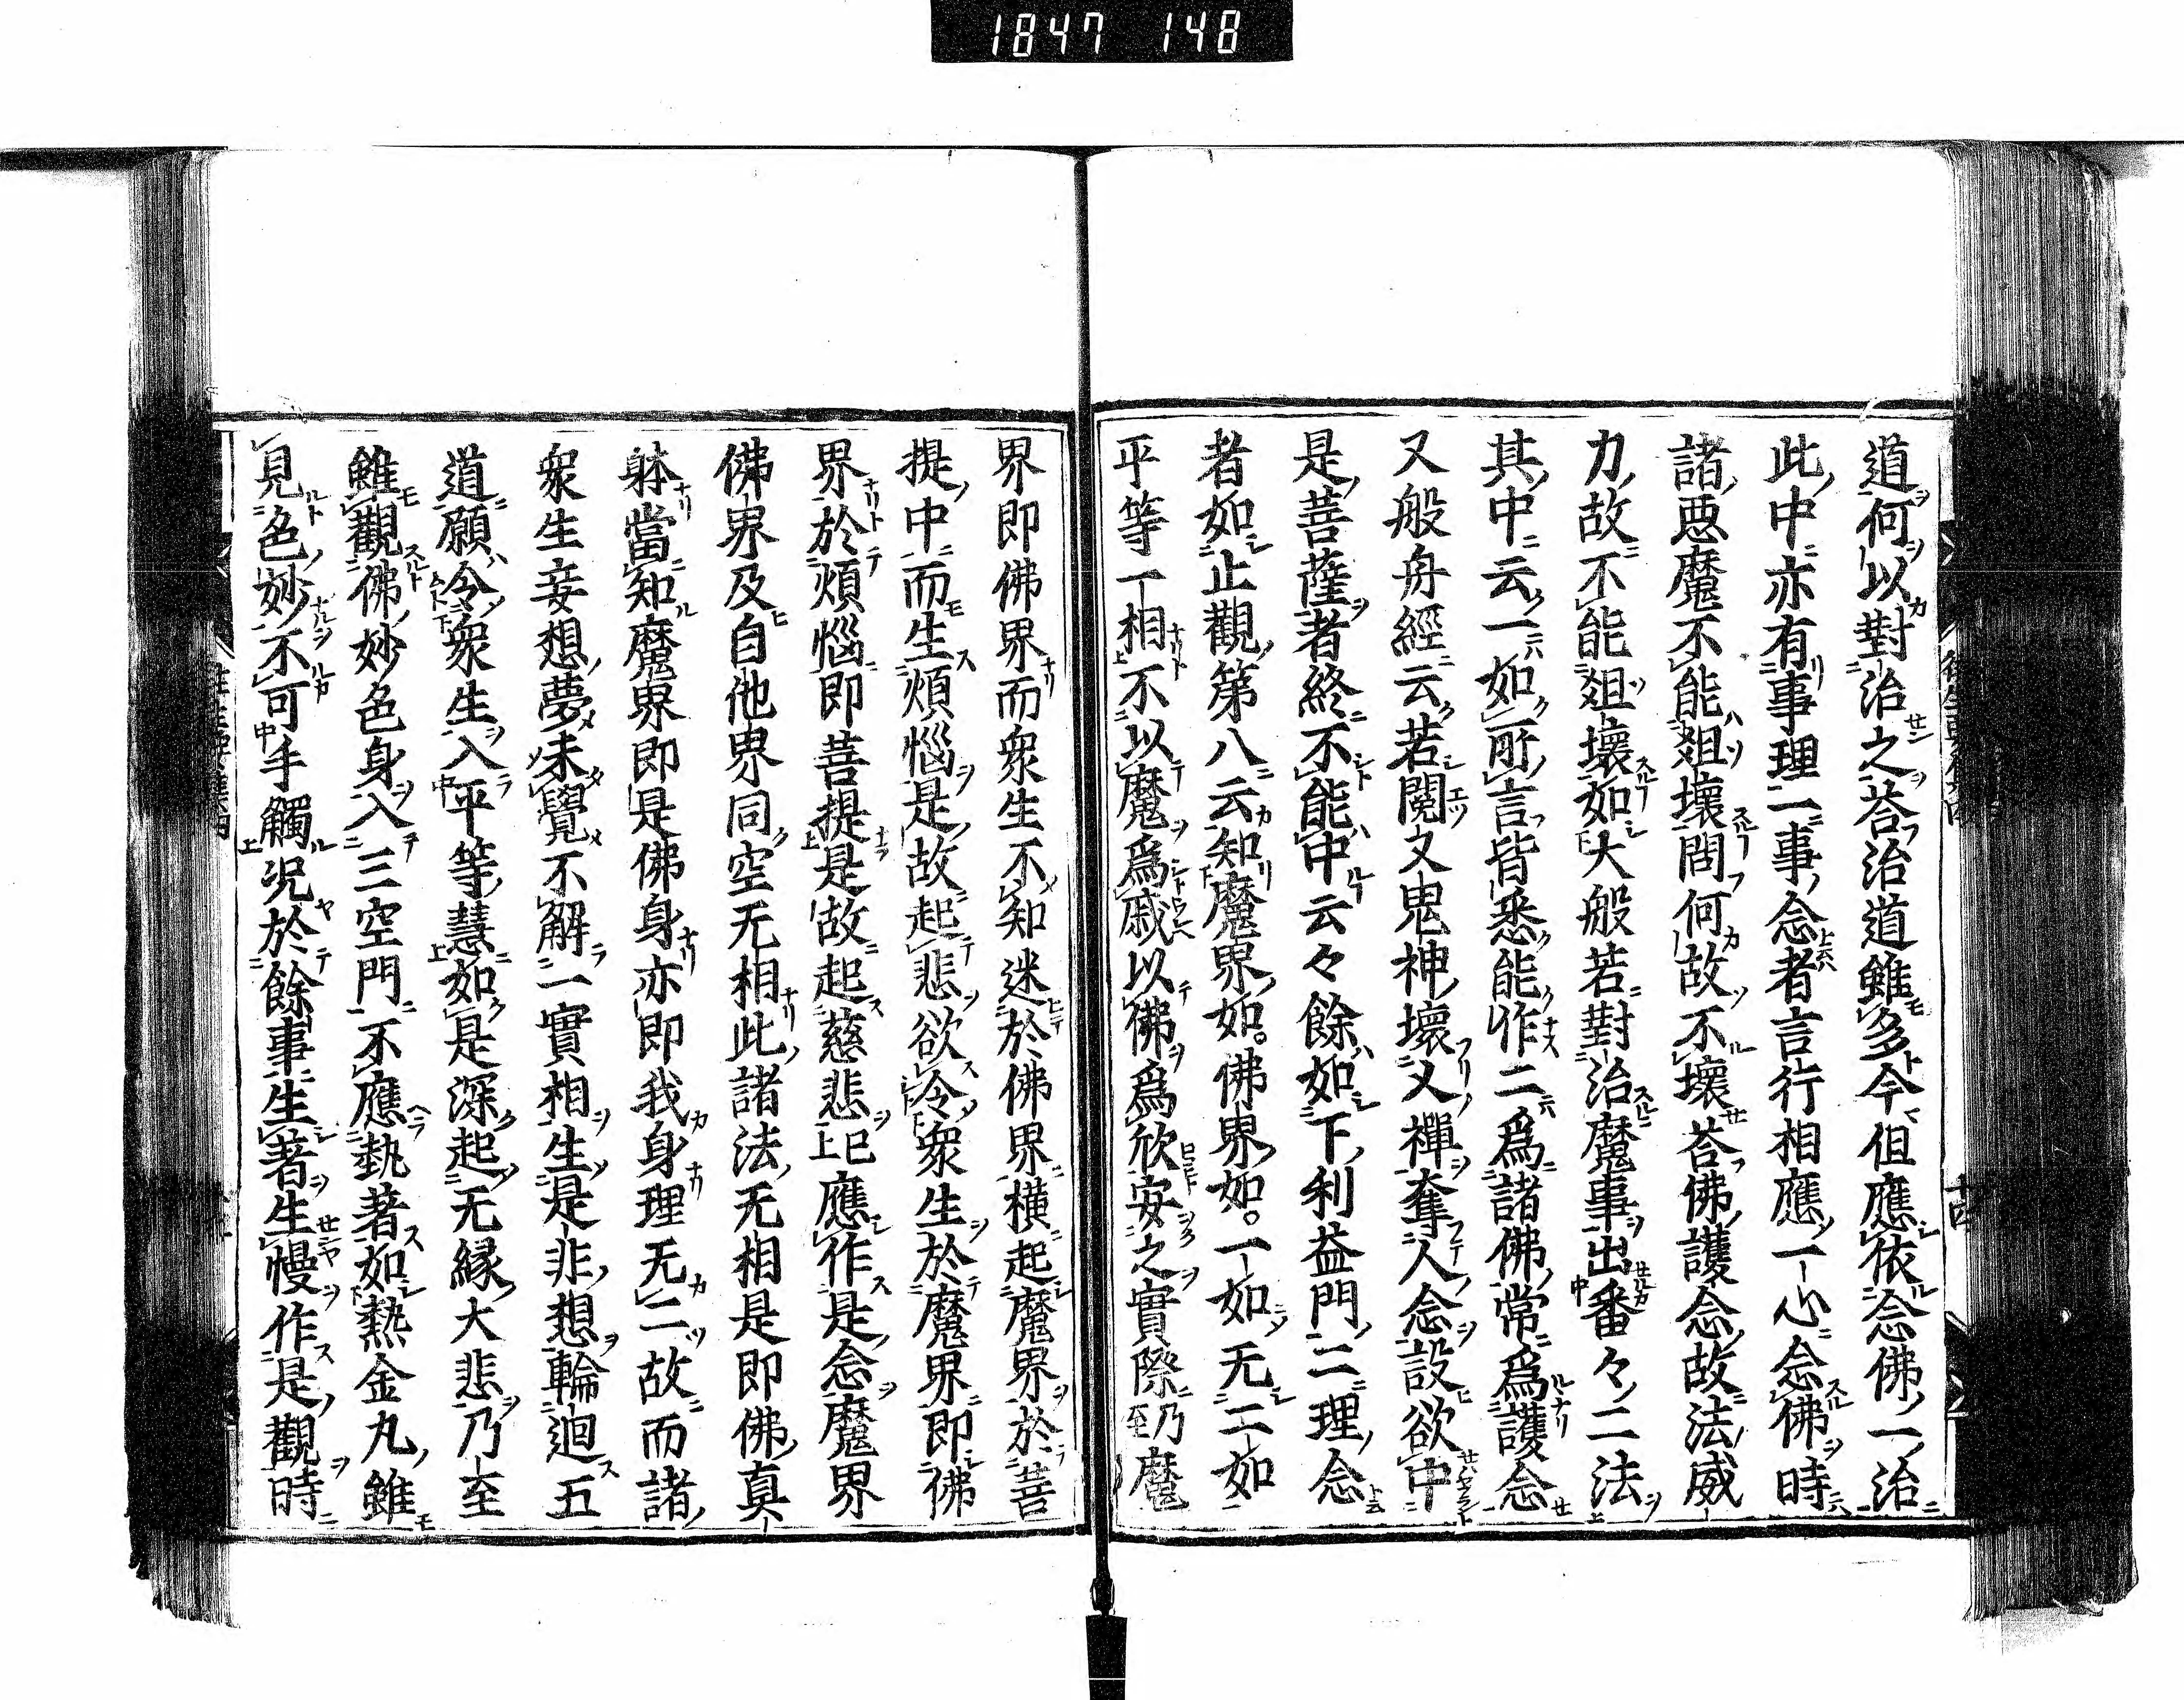 1847 148
道何以對治之荅治道雖多今但應依念佛一治
此中亦有事理二事念者言行相應一心念佛時
諸惡魔不能爼壞問何故不壞荅佛護念故法威
力故不能爼壞如大般若對治魔事出番々二法
其中云一如所言皆悉能作二爲諸佛常爲護念
又般舟經云若閱叉鬼神壞人禪奪人念設欲中
是菩薩者終不能中云々餘如下利益門二理念
者如止觀第八云知魔界如佛界如一如无二如
平等一相不以魔爲慼以佛爲欣安之實際乃至魔
界即佛界而衆生不知迷於佛界橫起魔界於菩
提中而生煩惱是故起悲欲令衆生於魔界即佛
界於煩惱即菩提是故起慈悲已應作是念魔界
佛界及自他界同空无相此諸法无相是即佛真
躰當知魔界即是佛身亦即我身理无二故而諸
衆生妄想夢未覺不解一實相生是非想輪迴五
道願令衆生入平等慧如是深起无緣大悲乃至
雖觀佛妙色身入三空門不應執著如熱金丸雖
見色妙不可手觸况於餘事生著生慢作是觀時